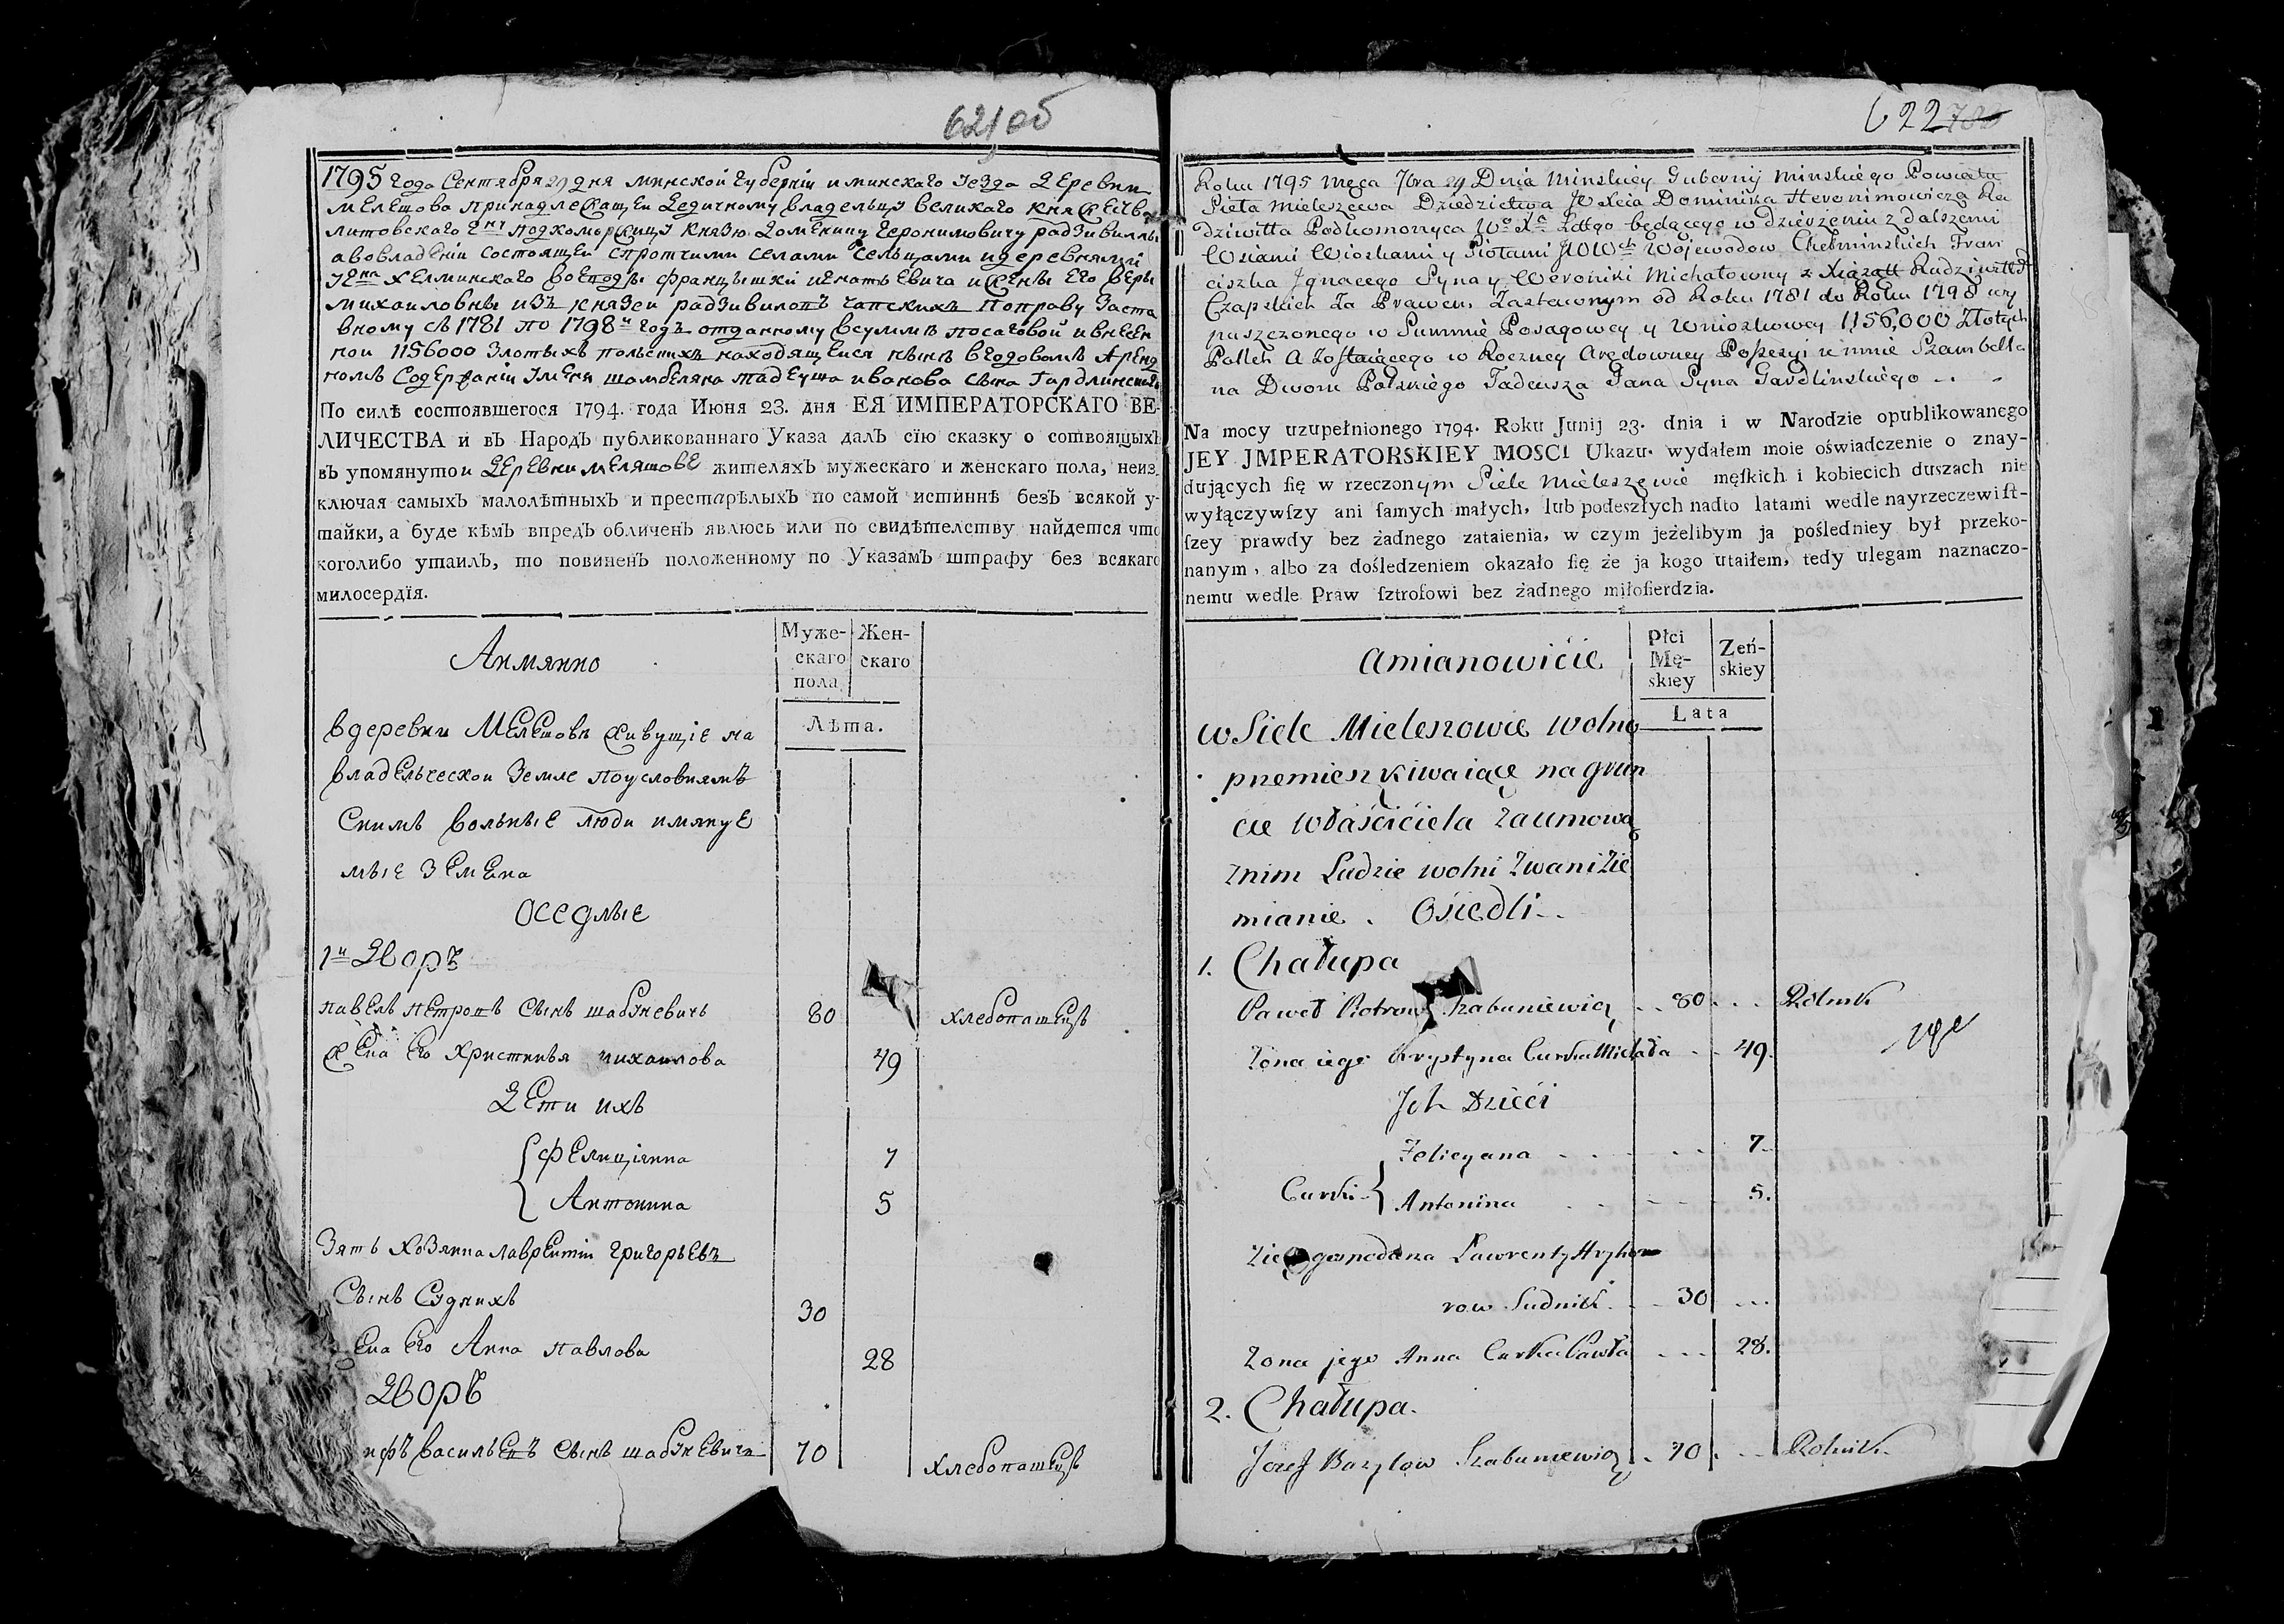 621 об
1795 года Сентября 29 дня минской губернiи и минскаго уезда Деревни
мелешова принадлежащеи Дедичному владельцу великаго княжества
литовскаго подкоморжицу князю Доменику Герониמовичу радзивиллу
а во владенiи состоящеи спротчими селами Сельцами и деревнями
хелминскаго воеводы францышки игнатьевича и жены его веры
михаиловны изъ князей радзивиловъ чапскихъ По праву Заста
вному съ 1781 по 1798 годъ отданному в сумме посаговой и внесен
ной 1156000 Злотыхъ польскихъ находящеися ныне в годовомъ Аренд
номъ Содержанiи у меня шамбеляна тадеуша иванова сына Гардлинскаго
По силѣ состоявшегося 1794. года Июня 23. дня ЕЯ ИМПЕРАТОРСКАГО ВЕ-
ЛИЧЕСТВА и въ Народъ публикованнаго Указа далъ сїю сказку о состоящыхъ
въ упомянутои Деревни меляшове жителяхъ мужескаго и женскаго пола, неиз-
ключая самыхъ малолѣтныхъ и престарѣлыхъ по самой истиннѣ безъ всякой у-
тайки, а буде кѣмъ впредъ обличенъ явлюсь или по свидѣтелству найдется что
коголибо утаилъ, то повиненъ положенному по Указамъ штрафу без всякаго
милосердїя.
Имянно
Муже-
скаго
пола
Жен-
скаго
Лѣта.
в деревни Мелешовѣ живущiе на
владельческой Земле по условиямъ
Снимъ вольные люди имянуе
мые Земена
Оседлые
1й Дворъ
павелъ петровъ Сынъ шабуневичъ 80 хлебопашецъ
Жена его христинья михаилова 49
Дети ихъ
Фелицiянна 7
Антонина 5
Зять хозяина лаврентiи григорьевъ
Сынъ Судникъ 30
ена его Анна павлова 28
Дворъ
ифъ васильевъ Сынъ шабуневичъ 70 хлебопашецъ
622
Roku 1795 Mręca 7bra 29 Dnia Minskiey Gubernij Minskiego Powiatu
Sioła Mieleszewa Dziedzictwa Dominika Heronimowicza Ra
dziwiłła Podkomorzyca będącego w dzierżeniu z dalszemi
Wsiami Wioskami y Siołami Wojewodow Chełminskich Fran
ciszka Jgnacego Syna y Weroniki Michałowny z Xiążąt Radziwiłłow
Czapskich Za Prawem Zastawnym od Roku 1781 do Roku 1798 wy
puszczonego w Summie Posagowey y Wnioskowey 1156,000 Złotych
Polskich A Zostaiącego w Roczney Arędowney Possesyi u mnie Szambella
na Dworu Polskiego Tadeusza Jana Syna Gardlinskiego
Na mocy uzupełnionego 1794. Roku Junij 23. dnia i w Narodzie opublikowanego
JEY JMPERATORSKIEY MOSCI Ukazu. wydałem moie oświadczenie o znay-
dujących ſię w rzeczonym Siele Mieleszewie męſkich i kobiecich duszach nie
wyłączywſzy ani ſamych małych, lub podeszłych nadto latami wedle nayrzeczewiſt-
ſzey prawdy bez żadnego zataienia, w czym jeżelibym ja poſledniey był przeko-
nanym, albo za dośledzeniem okazało ſię że ja kogo utaiłem, tedy ulegam naznaczo-
nemu wedle Praw ſztrofowi bez żadnego miłoſierdzia.
Amianowicie
Płci
Mę-
skiey
Zeń-
skiey
Lata
w Siele Mieleszowie wolno
pnemieszkiwaiące na grun
cie właściciela za umową
z nim Ludzie wolni zwani Zie
mianie. Osiedli
1. Chałupa
Paweł Piotrow Szabuniewicz 80 Rolnik
Zona iego Krystyna Curka Michała 49.
Jch Dzieci
Felicyana 7.
Curki Antonina 5.
Zięć gospodarza Lawrenty Hryho
row Sudnik 30
Zona jego Anna Curka Pawła 28.
2. Chałupa.
Jozef Bazylow Szabuniewicz 70 Rolnik